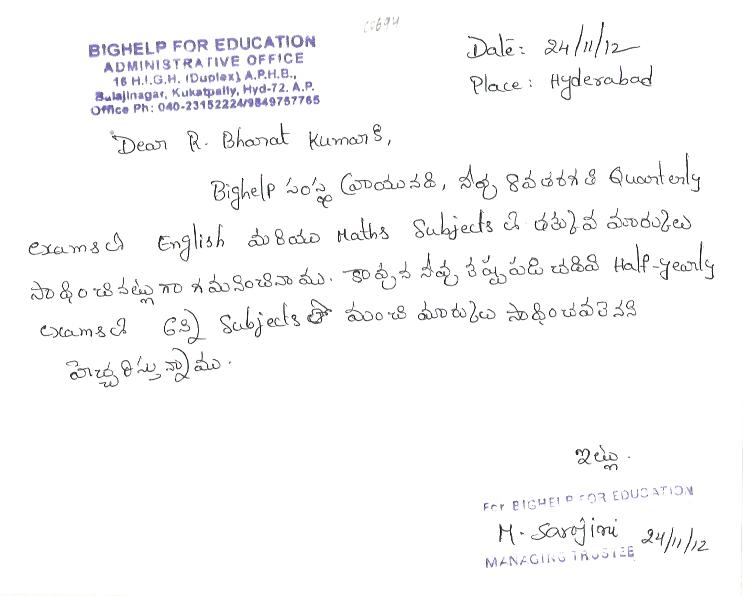 BIGHELP FOR EDUCATION
ADMINISTRATIVE OFFICE
16 H.I.G.H. (Duplex) A.P.H.B.,
Balajinagar, Kukatpally, Hyd-72. A.P.
Office Ph: 040-23152224/9849757765
Date: 24/11/12
Place: Hyderabad
Dear R. Bharat Kumar,
Bighelp సంస్థ వ్రాయునది, నీవు 8వ తరగతి Quarterly
examsలో English మరియు Maths Subjectsలో తక్కువ మార్కులు
సాధించినట్లుగా గమనించినాము. కావున నీవు కష్టపడి చదివి Half-yearly
examsలో అన్ని Subjectsలో మంచి మార్కులు సాధించవలెనని
హెచ్చరిస్తున్నాము.
ఇట్లు.
For BIGHELP FOR EDUCATION
M. Sarojini 24/11/12
MANAGING TRUSTEE